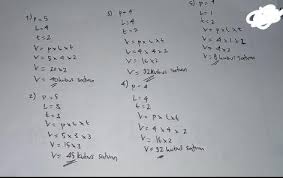 1) p = 5
L = 4
t = 2
V = p x L x t
V = 5 x 4 x 2
V = 20 x 2
V = 40 kubus satuan
2) p = 5
L = 3
t = 3
V = p x L x t
V = 5 x 3 x 3
V = 15 x 3
V = 45 kubus satuan
3) p = 4
L = 4
t = 2
V = p x L x t
V = 4 x 4 x 2
V = 16 x 2
V = 32 kubus satuan
4) p = 4
L = 4
t = 2
V = p x L x t
V = 4 x 4 x 2
V = 16 x 2
V = 32 kubus satuan
5) p = 4
L = 1
t = 2
V = p x L x t
V = 4 x 1 x 2
V = 4 x 2
V = 8 kubus satuan